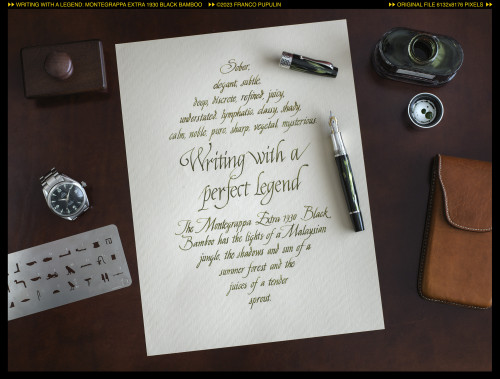 WRITING WITH A LEGEND: MONTEGRAPPA EXTRA 1930 BLACK BAMBOO ©2023 FRANCO PUPULIN ORIGINAL FILE 6132x8176 PIXELS
Sober,
elegant, subtle.
deep, discrete, refined, juicy,
understated, lymphatic, classy, shady,
calm, noble, pure, sharp, vegetal, mysterious
Writing with a
perfect Legend
The Montegrappa Extra 1930 Black
Bamboo has the lights of a Malaysian
jungle, the shadows and sun of a
summer forest and the
juices of a tender
sprout.